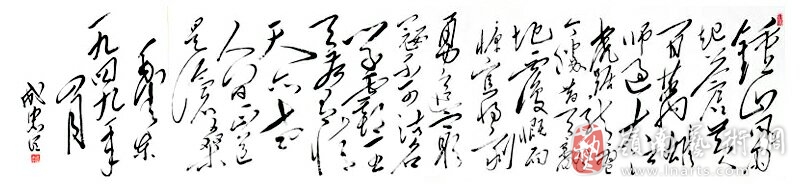 鍾山風雨
起蒼黄
百萬雄
师过大江
虎踞龙盘
今勝昔天翻
地覆慨而
慷宜将剩
勇追窮
寇不可沽名
学霸王
天若有情
天亦老
人间正道
是滄桑
毛泽东
一九四九年
四月
嶺南藝術網
www.lnarts.com